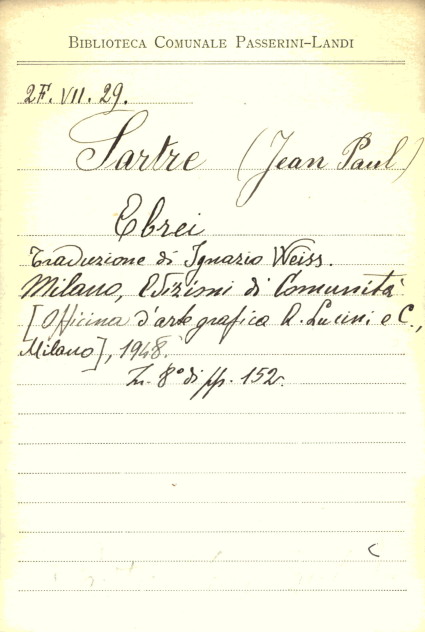 BIBLIOTECA COMUNALE PASSERINI-LANDI
2F. VII. 29.
Sartre (Jean Paul)
Ebrei
Traduzione di Ignazio Weiss.
Milano, Edizioni di Comunità
[Officina d'arte grafica A. Lucini e C.,
Milano], 1948.
In. 8° di pp. 152.
C